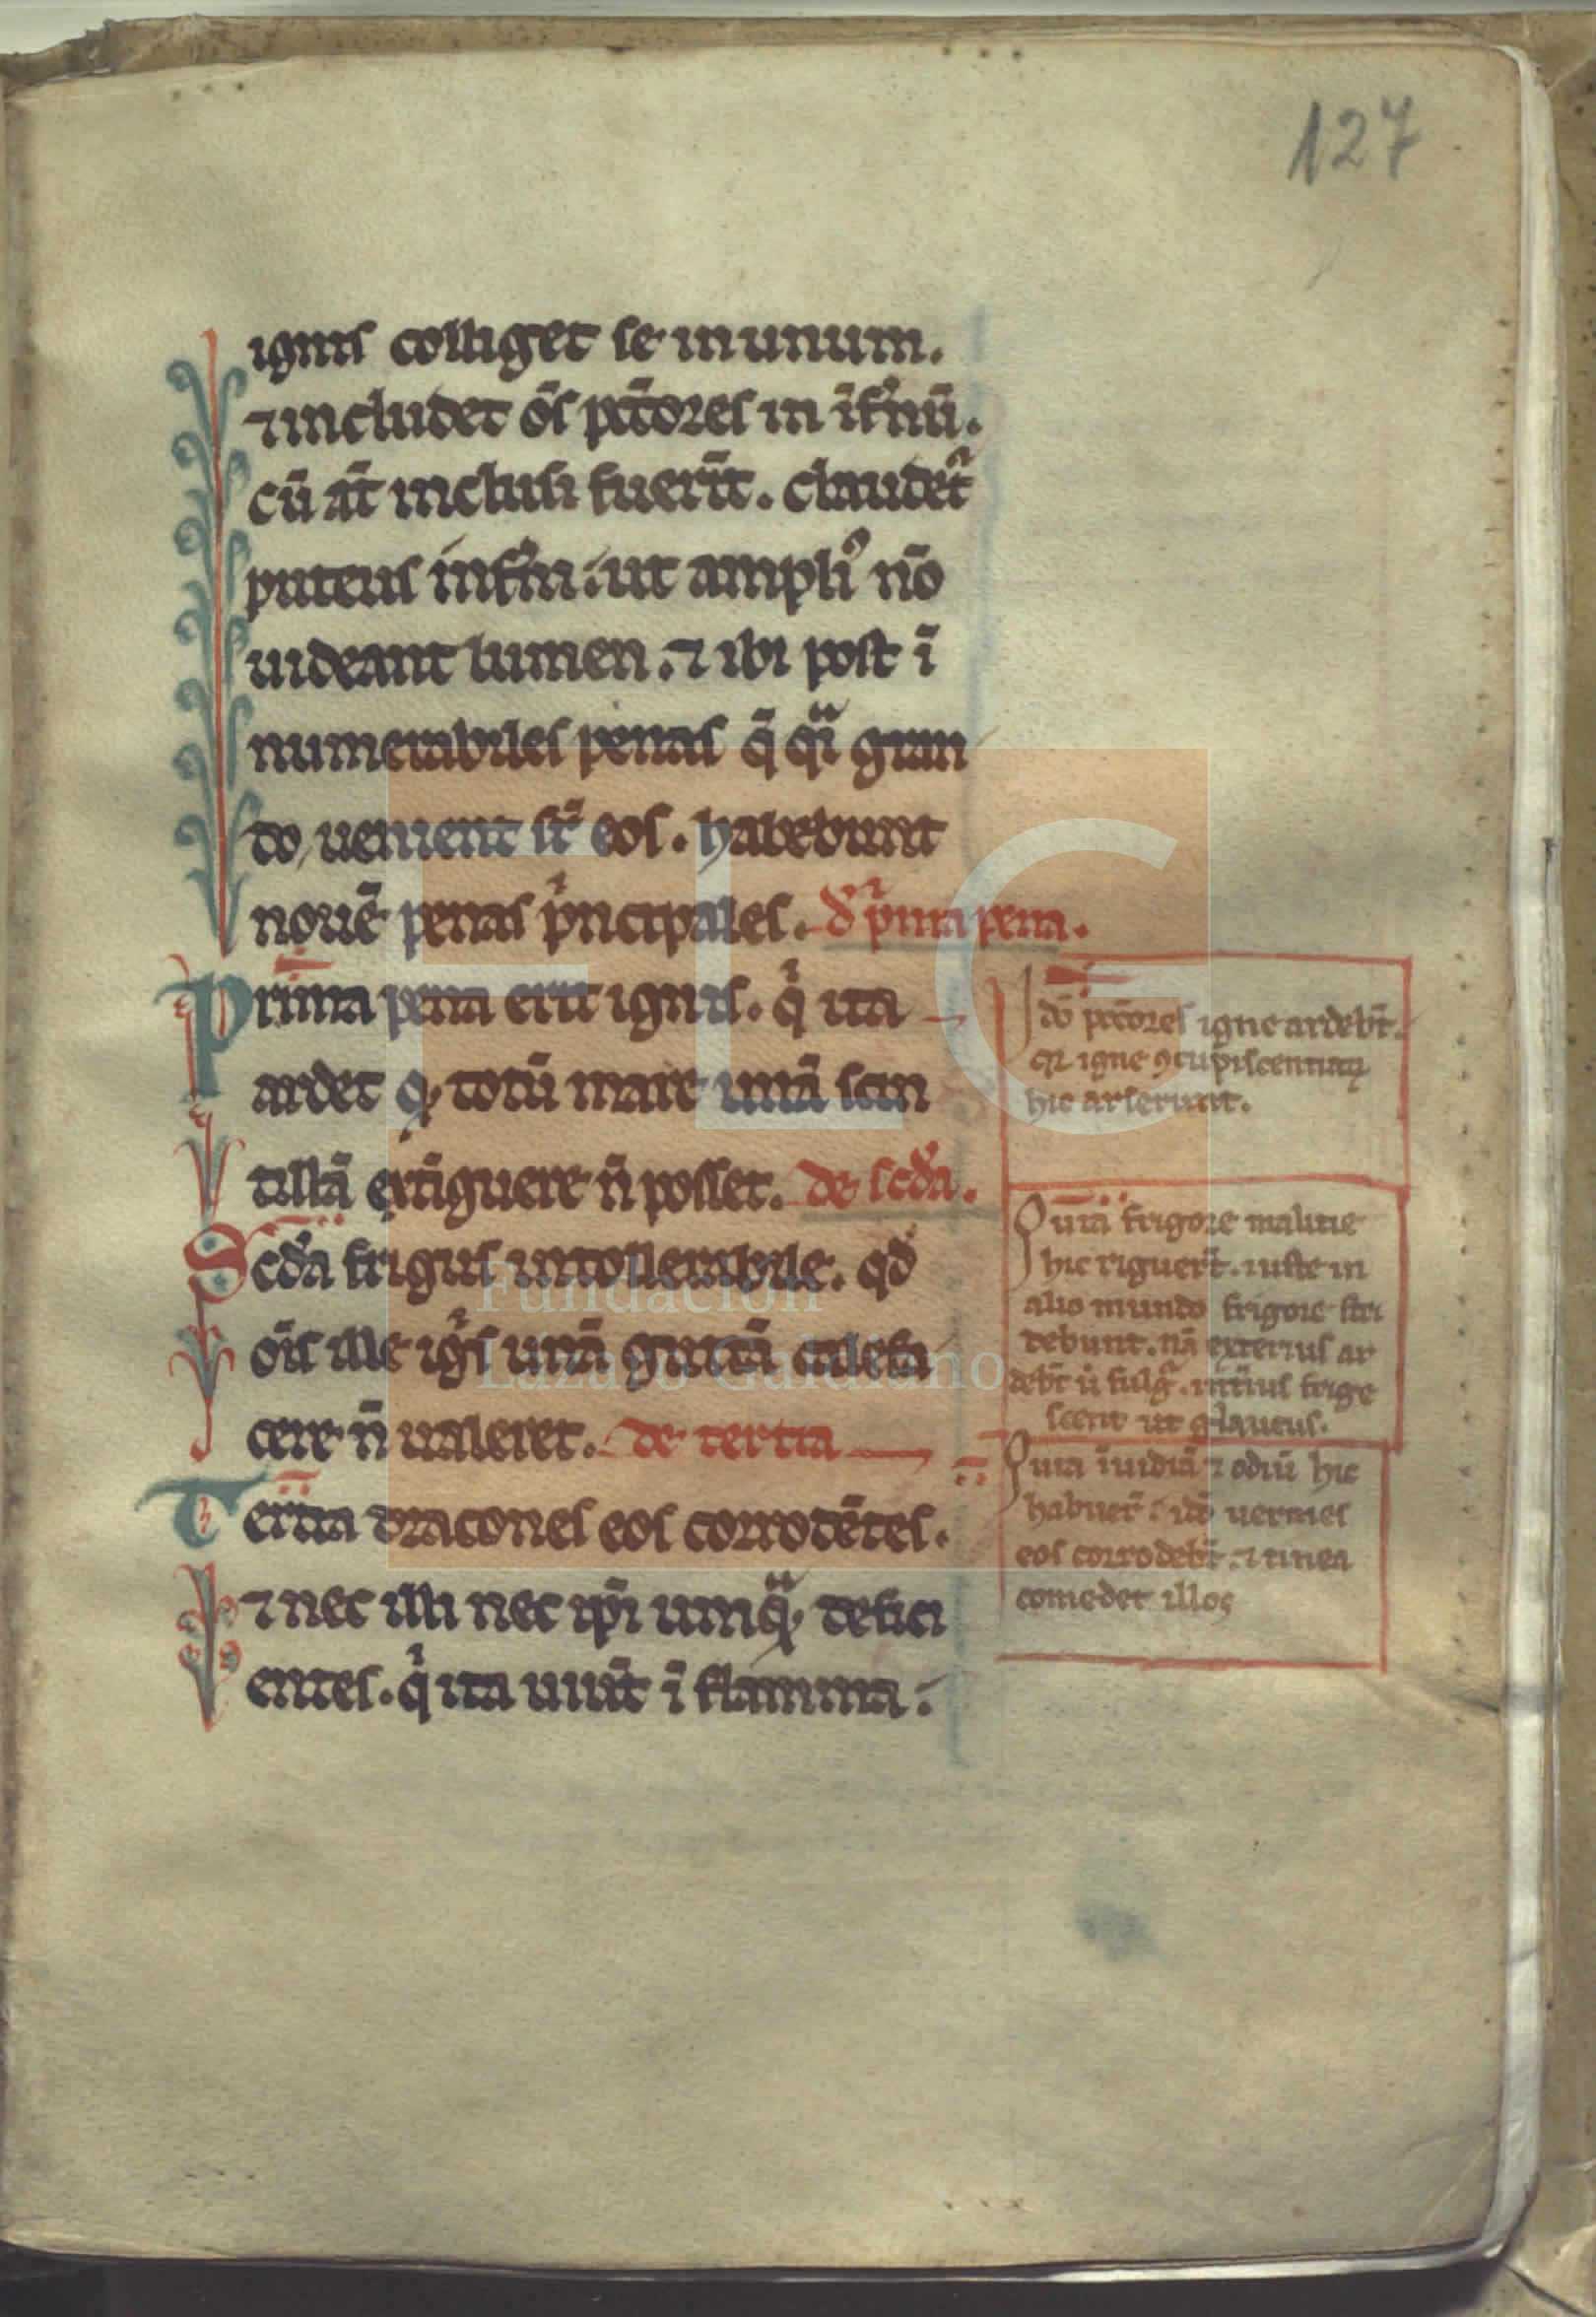 127
ignis colliget se in unum.
⁊ includet o̅s pc̅tores in i̅fͥnu̅.
cu̅ at̅ inclusi fueri̅t. claudet᷑
puteus infͥni. ut ampli⁹ no̅
uideant lumen. ⁊ ibi post i̅
numerabiles penas q̅ qͣi gran
do, uenient sr̅ eos. habebunt
noue̅ penas pͥncipales. d̕ pͥma pena.
Prima pena erit ignis. qͥ ita
ardet qͥ, totu̅ mare una̅ scin
tilla̅ exti̅guere n̅ posset. de scd̕a.
Scd̕a frigus intollerabile. qd̕
oi̅s ille igͥs una̅ gutta̅ calefa
cere n̅ ualeret. de tertia
Tertia dracones eos corrode̅tes.
⁊ nec illi nec ip̅i umqͣ, defici
entes. qͥ ita uiu̅t i̅ flamma.
Ido̅ pc̅tores igne ardebt̅.
qꝛ igne ꝯcupiscentiaꝝ
hic arserunt.
Quia̅ frigore malitie
hic riguer̅t. iuste in
alio mundo frigore stri
debunt. na̅ exterius ar
debt̅ ut fulg᷑. int̅ius frige
scent ut glacies.
Quia i̅uidia̅ ⁊ odiu̅ hic
habuer̅. ido̅ uermes
eos corrodebt̅. ⁊ tinea
comedet illos
FLG
Fundación
Lázaro Galdiano